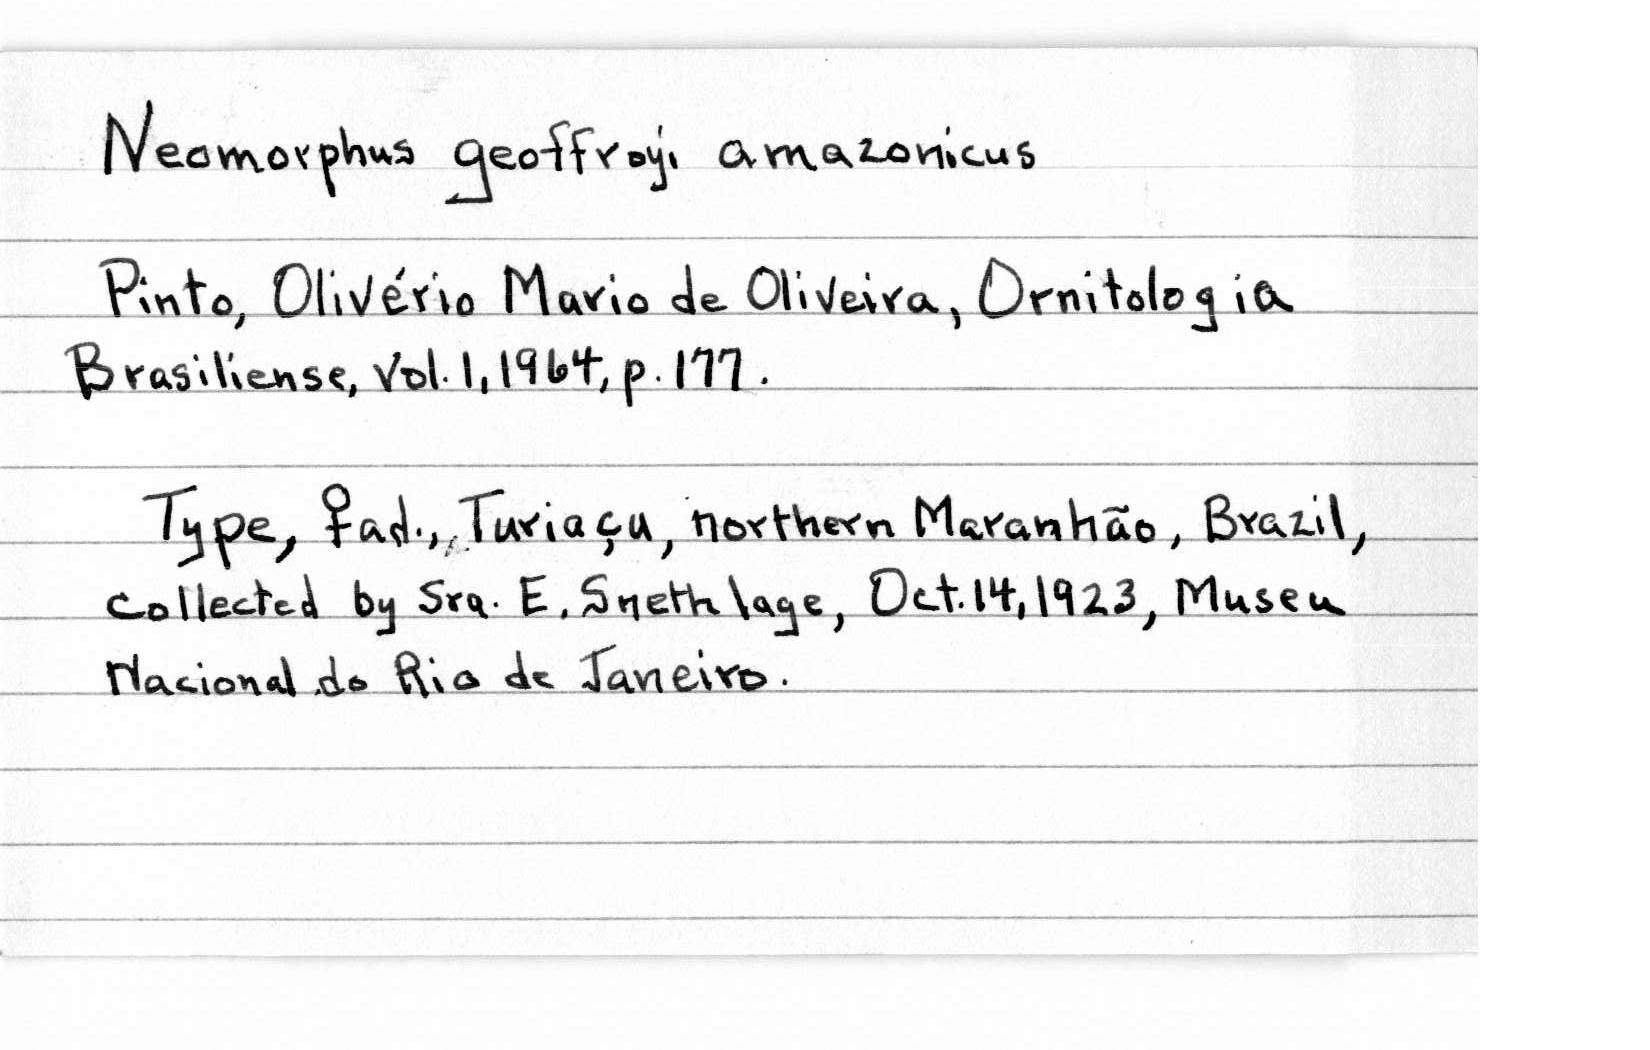 Neomorphus geoffroyi amazonicus
Pinto, Olivério Mario de Oliveira, Ornitologia
Brasiliense, Vol. 1, 1964, p. 177.
Type, ♀ ad., Turiaçu, northern Maranhão, Brazil,
collected by Sra. E. Snethlage, Oct. 14, 1923, Museu
Nacional do Rio de Janeiro.